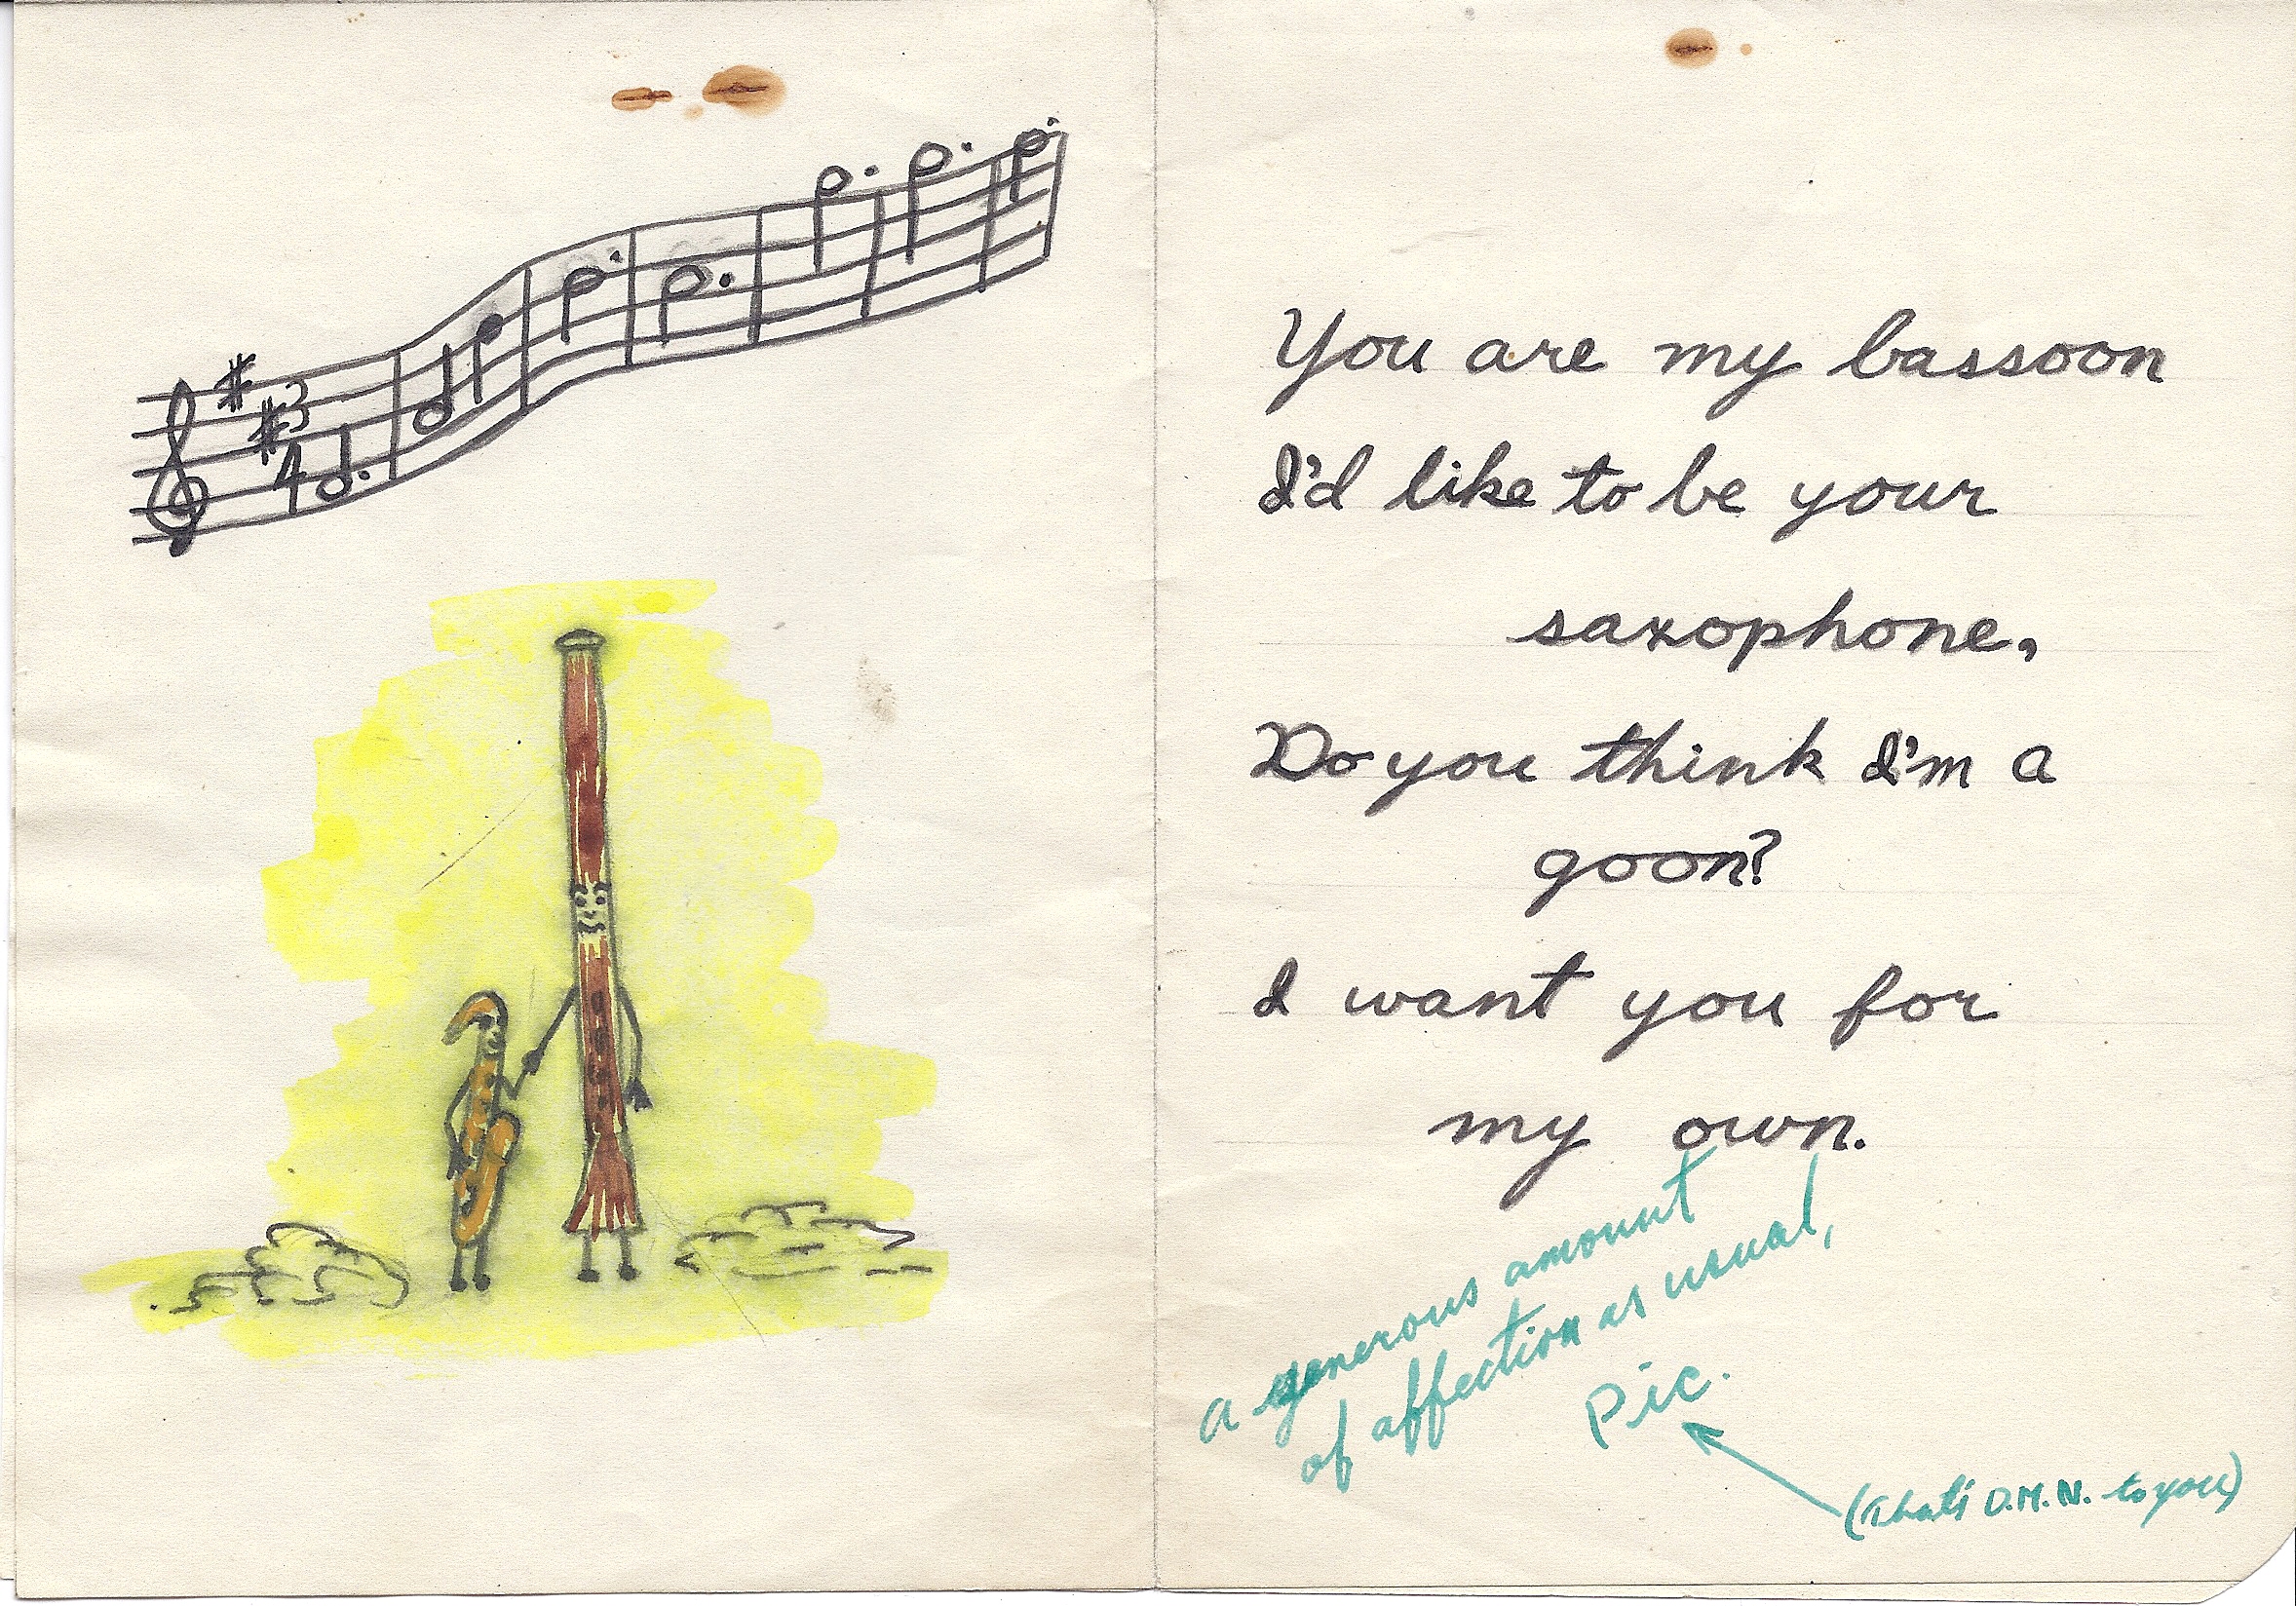 3
4
You are my bassoon
I'd like to be your
saxophone,
Do you think I'm a
goon?
I want you for
my own.
a generous amount
of affection as usual,
Pic.
(That's D.M.N. to you)